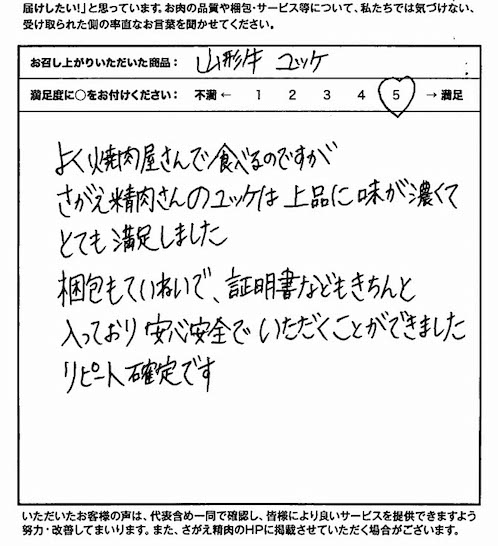 届けしたい！」と思っています。お肉の品質や梱包・サービス等について、私たちでは気づけない、
受け取られた側の率直なお言葉を聞かせてください。
お召し上がりいただいた商品： 山形牛 ユッケ
満足度に○をお付けください： 不満 ← 1 2 3 4 5 → 満足
よく焼肉屋さんで食べるのですが
さがえ精肉さんのユッケは上品に味が濃くて
とても満足しました
梱包もていねいで、証明書などもきちんと
入っており安心安全でいただくことができました
リピート確定です
いただいたお客様の声は、代表含め一同で確認し、皆様により良いサービスを提供できますよう
努力・改善してまいります。また、さがえ精肉のHPに掲載させていただく場合がございます。